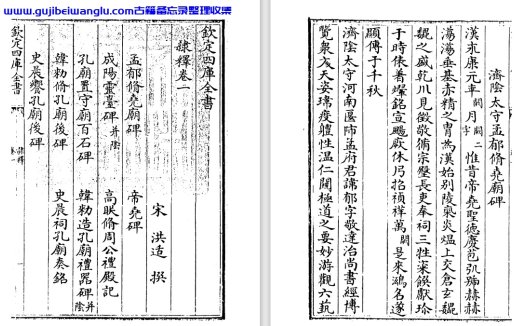 www.gujibeiwanglu.com古籍备忘录整理收集
欽定四庫全書
隸釋卷一
宋 洪适 撰
孟郁脩堯廟碑 帝堯碑
成陽靈臺碑 并陰 高眹脩周公禮殿記
孔廟置守廟百石碑 韓勑造孔廟禮器碑 并陰
韓勑脩孔廟後碑 史晨祠孔廟奏銘
史晨饗孔廟後碑
欽定四庫全書 隸釋 卷一
濟陰太守孟郁脩堯廟碑
漢永康元年闕月闕二字惟昔帝堯聖德慶苞弘踊赫赫
蕩蕩垂基赤精之胄為漢始別陵炎熅上交倉玄
之盛乾川見徵敬脩宗長吏奉祠三牲粢餟獻珍
于時依舊銘宣颺厥休丹掐禎祥萬闕是來鴻名遂
顯傳于千秋
濟陰太守河南匽師孟府君諱郁字敬達治尚書經博
覽衆文天姿琦性溫仁闓極道之要妙游觀六蓺